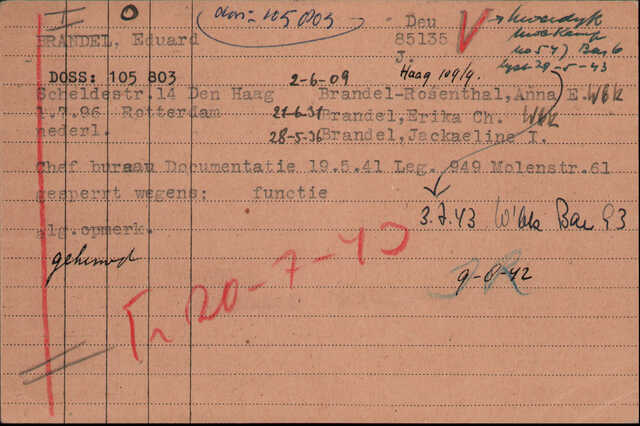 doss: 105803
BRANDEL, Eduard
Deu
85135
J.
DOSS: 105 803
Haag 109/9.
29-5-43
2-6-09
Scheldestr.14 Den Haag Brandel-Rosenthal,Anna E. Wbk
1.7.96 Rotterdam 21-6-31 Brandel,Erika Ch. Wbk
nederl. 28-5-36 Brandel,Jackaeline I.
Chef bureau Documentatie 19.5.41 Leg. 949 Molenstr.61
gesperrt wegens: functie
3.7.43 W'bk Bar 93
alg.opmerk.
gehuwd
Tr 20-7-43
9-6-42